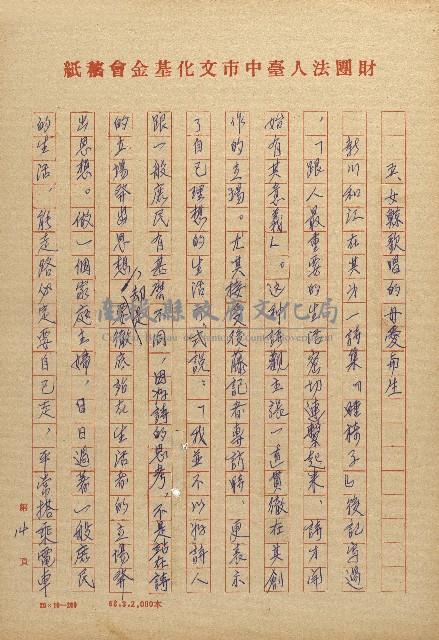 財團法人臺中市文化基金會稿紙
五、女縣歌唱的母愛而生
新川和江在其次一詩集『睡椅子』後記寫過
，「跟人最重要的生活密切連繫起來，詩才開
始有其意義」。這種詩觀主張一直貫徹在其創
作的立場。尤其接受後藤記者專訪時，更表示
了自己理想的生活方式說：「我並不以為詩人
跟一般庶民有甚麼不同，因為詩的思考，不是站在詩
的立場發出思想，却是徹底站在生活者的立場發
出思想。做一個家庭主婦，日日過著一般庶民
的生活，能走路必定要自己走，平常搭乘電車
第 14 頁
20×10=200
68.3.2,000本
南投縣政府文化局